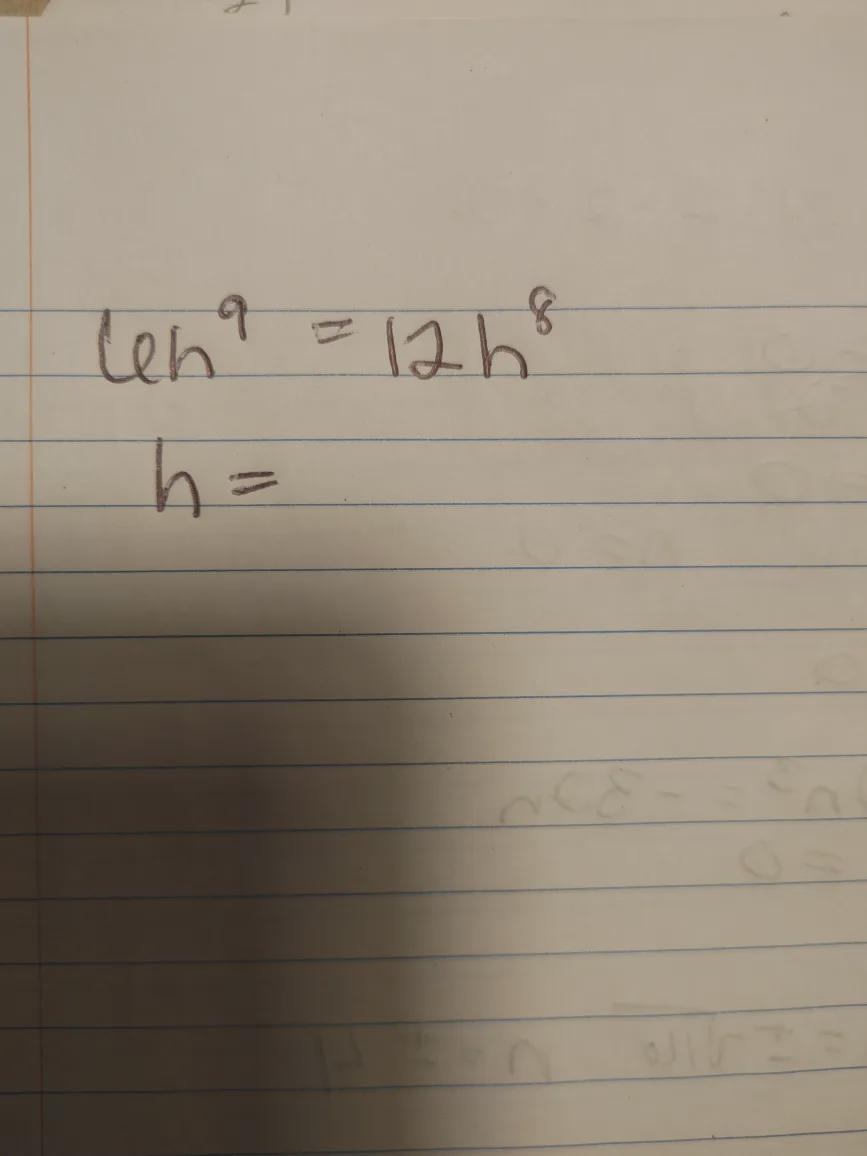 6h⁹ = 12h⁸
h =